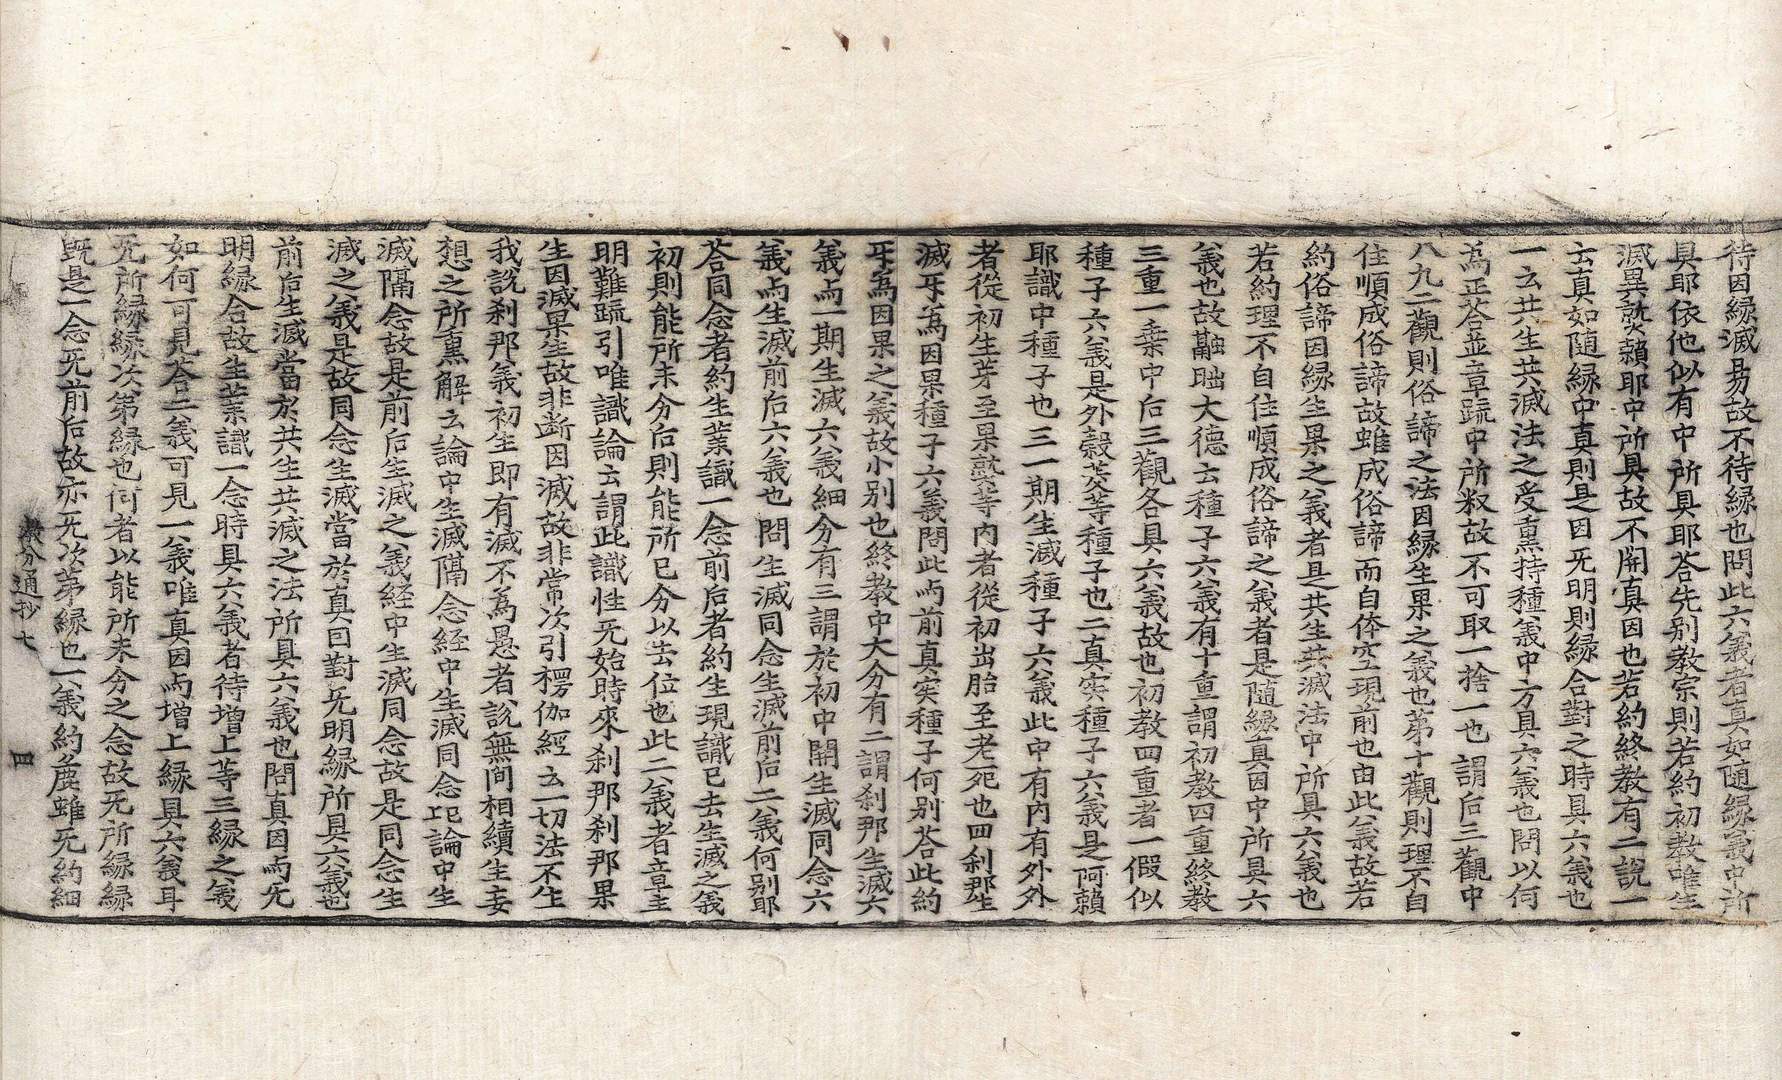 待因縁滅易故不待縁也問此六義者真如随縁義中所
具耶依他似有中所具耶荅先別教宗則若約初教唯生
滅異熟頼耶中所具故不開真因也若約終教有二說一
云真如随縁中真則是因旡明則縁合對之時具六義也
一云共生共滅法之受熏持種義中方具六義也問以何
爲正荅並章䟽中所㪅故不可取一捨一也謂后三觀中
八九二觀則俗諦之法因縁生果之義也第十觀則理不自
住順成俗諦故雖成俗諦而自体空現前也由此義故若
約俗諦因縁生果之義者是共生共滅法中所具六義也
若約理不自住順成俗諦之義者是随縁真因中所具六
義也故融昢大德云種子六義有十重謂初教四重終教
三重一桒中后三觀各具六義故也初教四重者一假似
種子六義是外糓芨等種子也二真实種子六義是阿頼
耶識中種子也三一期生滅種子六義此中有內有外外
者從初生芽至果㷱等內者從初出胎至老死也四刹那生
滅牙爲因果種子六義問此与前真实種子何別荅此約
牙爲因果之義故小別也終教中大分有二謂刹那生滅六
義与一期生滅六義細分有三謂於初中開生滅同念六
義与生滅前后六義也問生滅同念生滅前后二義何別耶
荅同念者約生業識一念前后者約生現識已去生滅之義
初則能所未分后則能所已分以去位也此二義者章主
明難䟽引唯識論云謂此識性旡始時來刹那刹那果
生因滅果生故非断因滅故非常次引楞伽經云一切法不生
我說刹那義初生即有滅不爲愚者說無间相續生妄
想之所熏解云論中生滅隔念經中生滅同念㔾論中生
滅隔念故是前后生滅之義經中生滅同念故是同念生
滅之義是故同念生滅當於真囙對旡明縁所具六義也
前后生滅當於共生共滅之法所具六義也問真因与旡
明縁合故生業識一念時具六義者待増上等三縁之義
如何可見荅二義可見一義唯真因与増上縁具六義耳
旡所縁縁次第縁也何者以能所未分之念故旡所縁縁
旣是一念旡前后故亦旡次第縁也一義約麁雖旡約細
教分通抄七　四